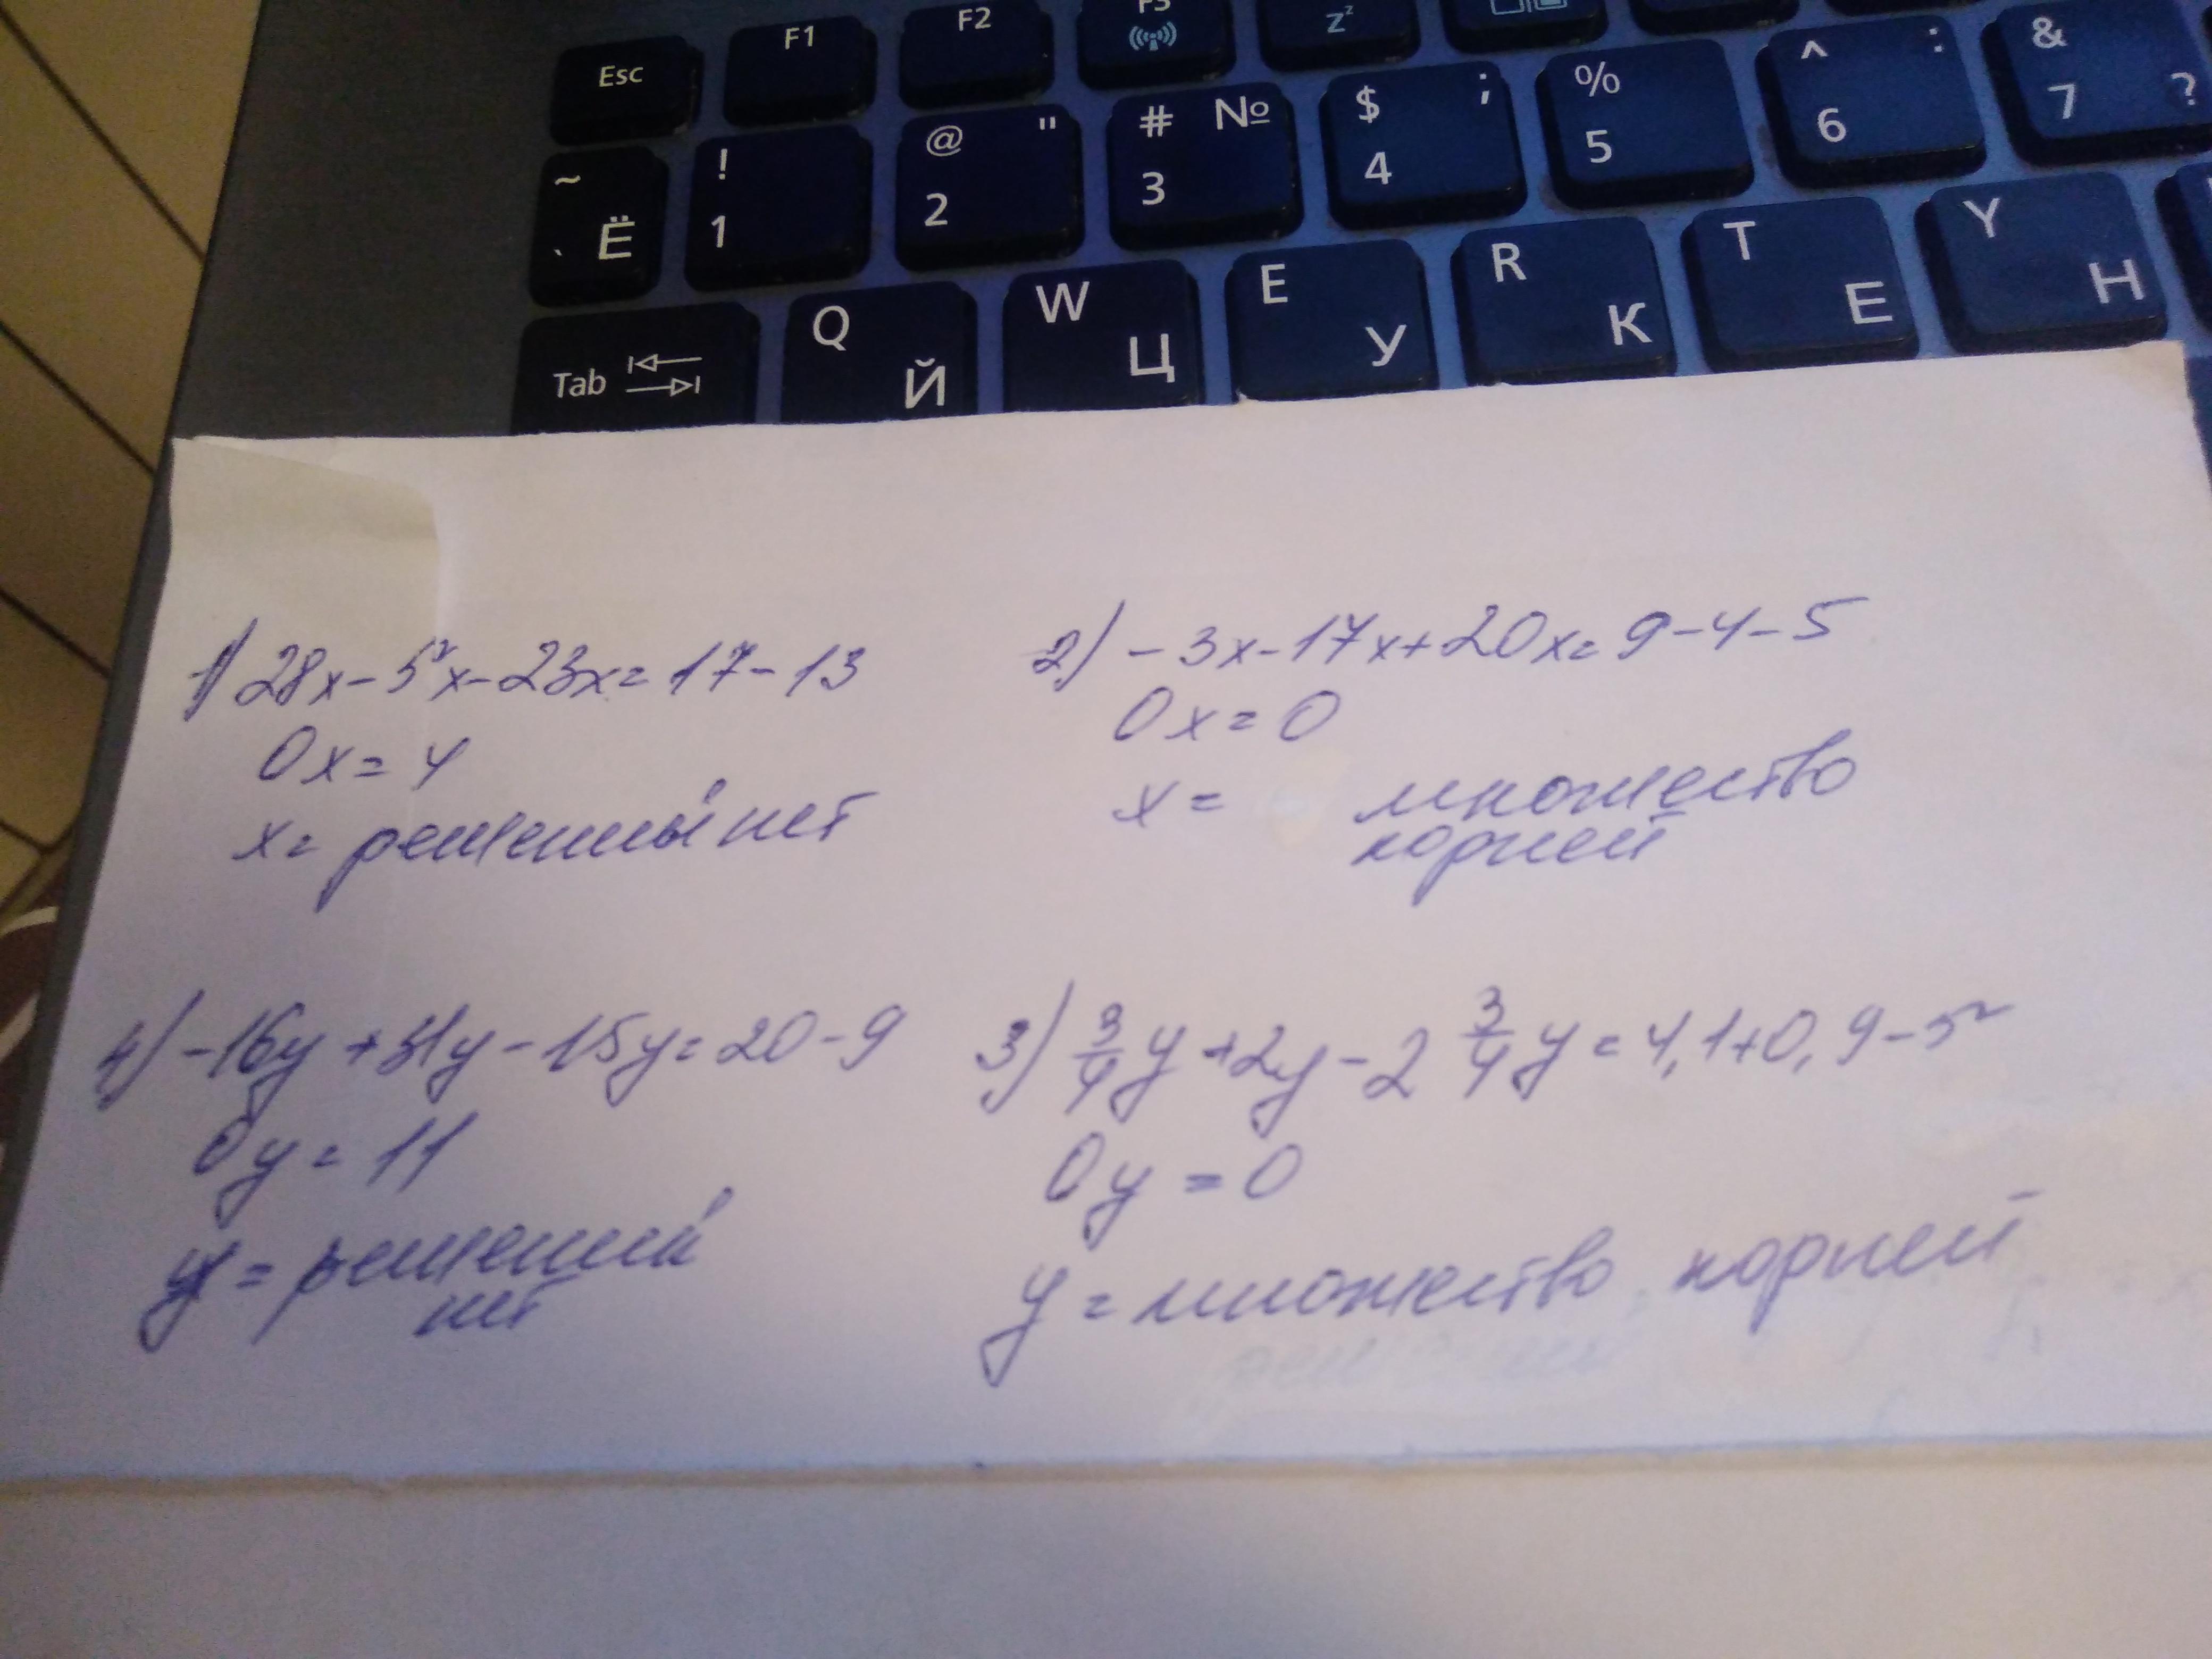 Esc F1 F2 F3 Zz
~ ` Ё ! 1 @ " 2 # № 3 $ ; 4 % 5 ^ : 6 & 7 ?
Tab Q Й W Ц E У R К T Е Y Н
1) 28x-5x-23x=17-13
0x=4
x= решений нет
2) -3x-17x+20x=9-4-5
0x=0
x= множество
корней
4) -16y+31y-15y=20-9
0y=11
y= решений
нет
3) 3/4 y+2y-2 3/4 y=4,1+0,9-5
0y=0
y= множество корней